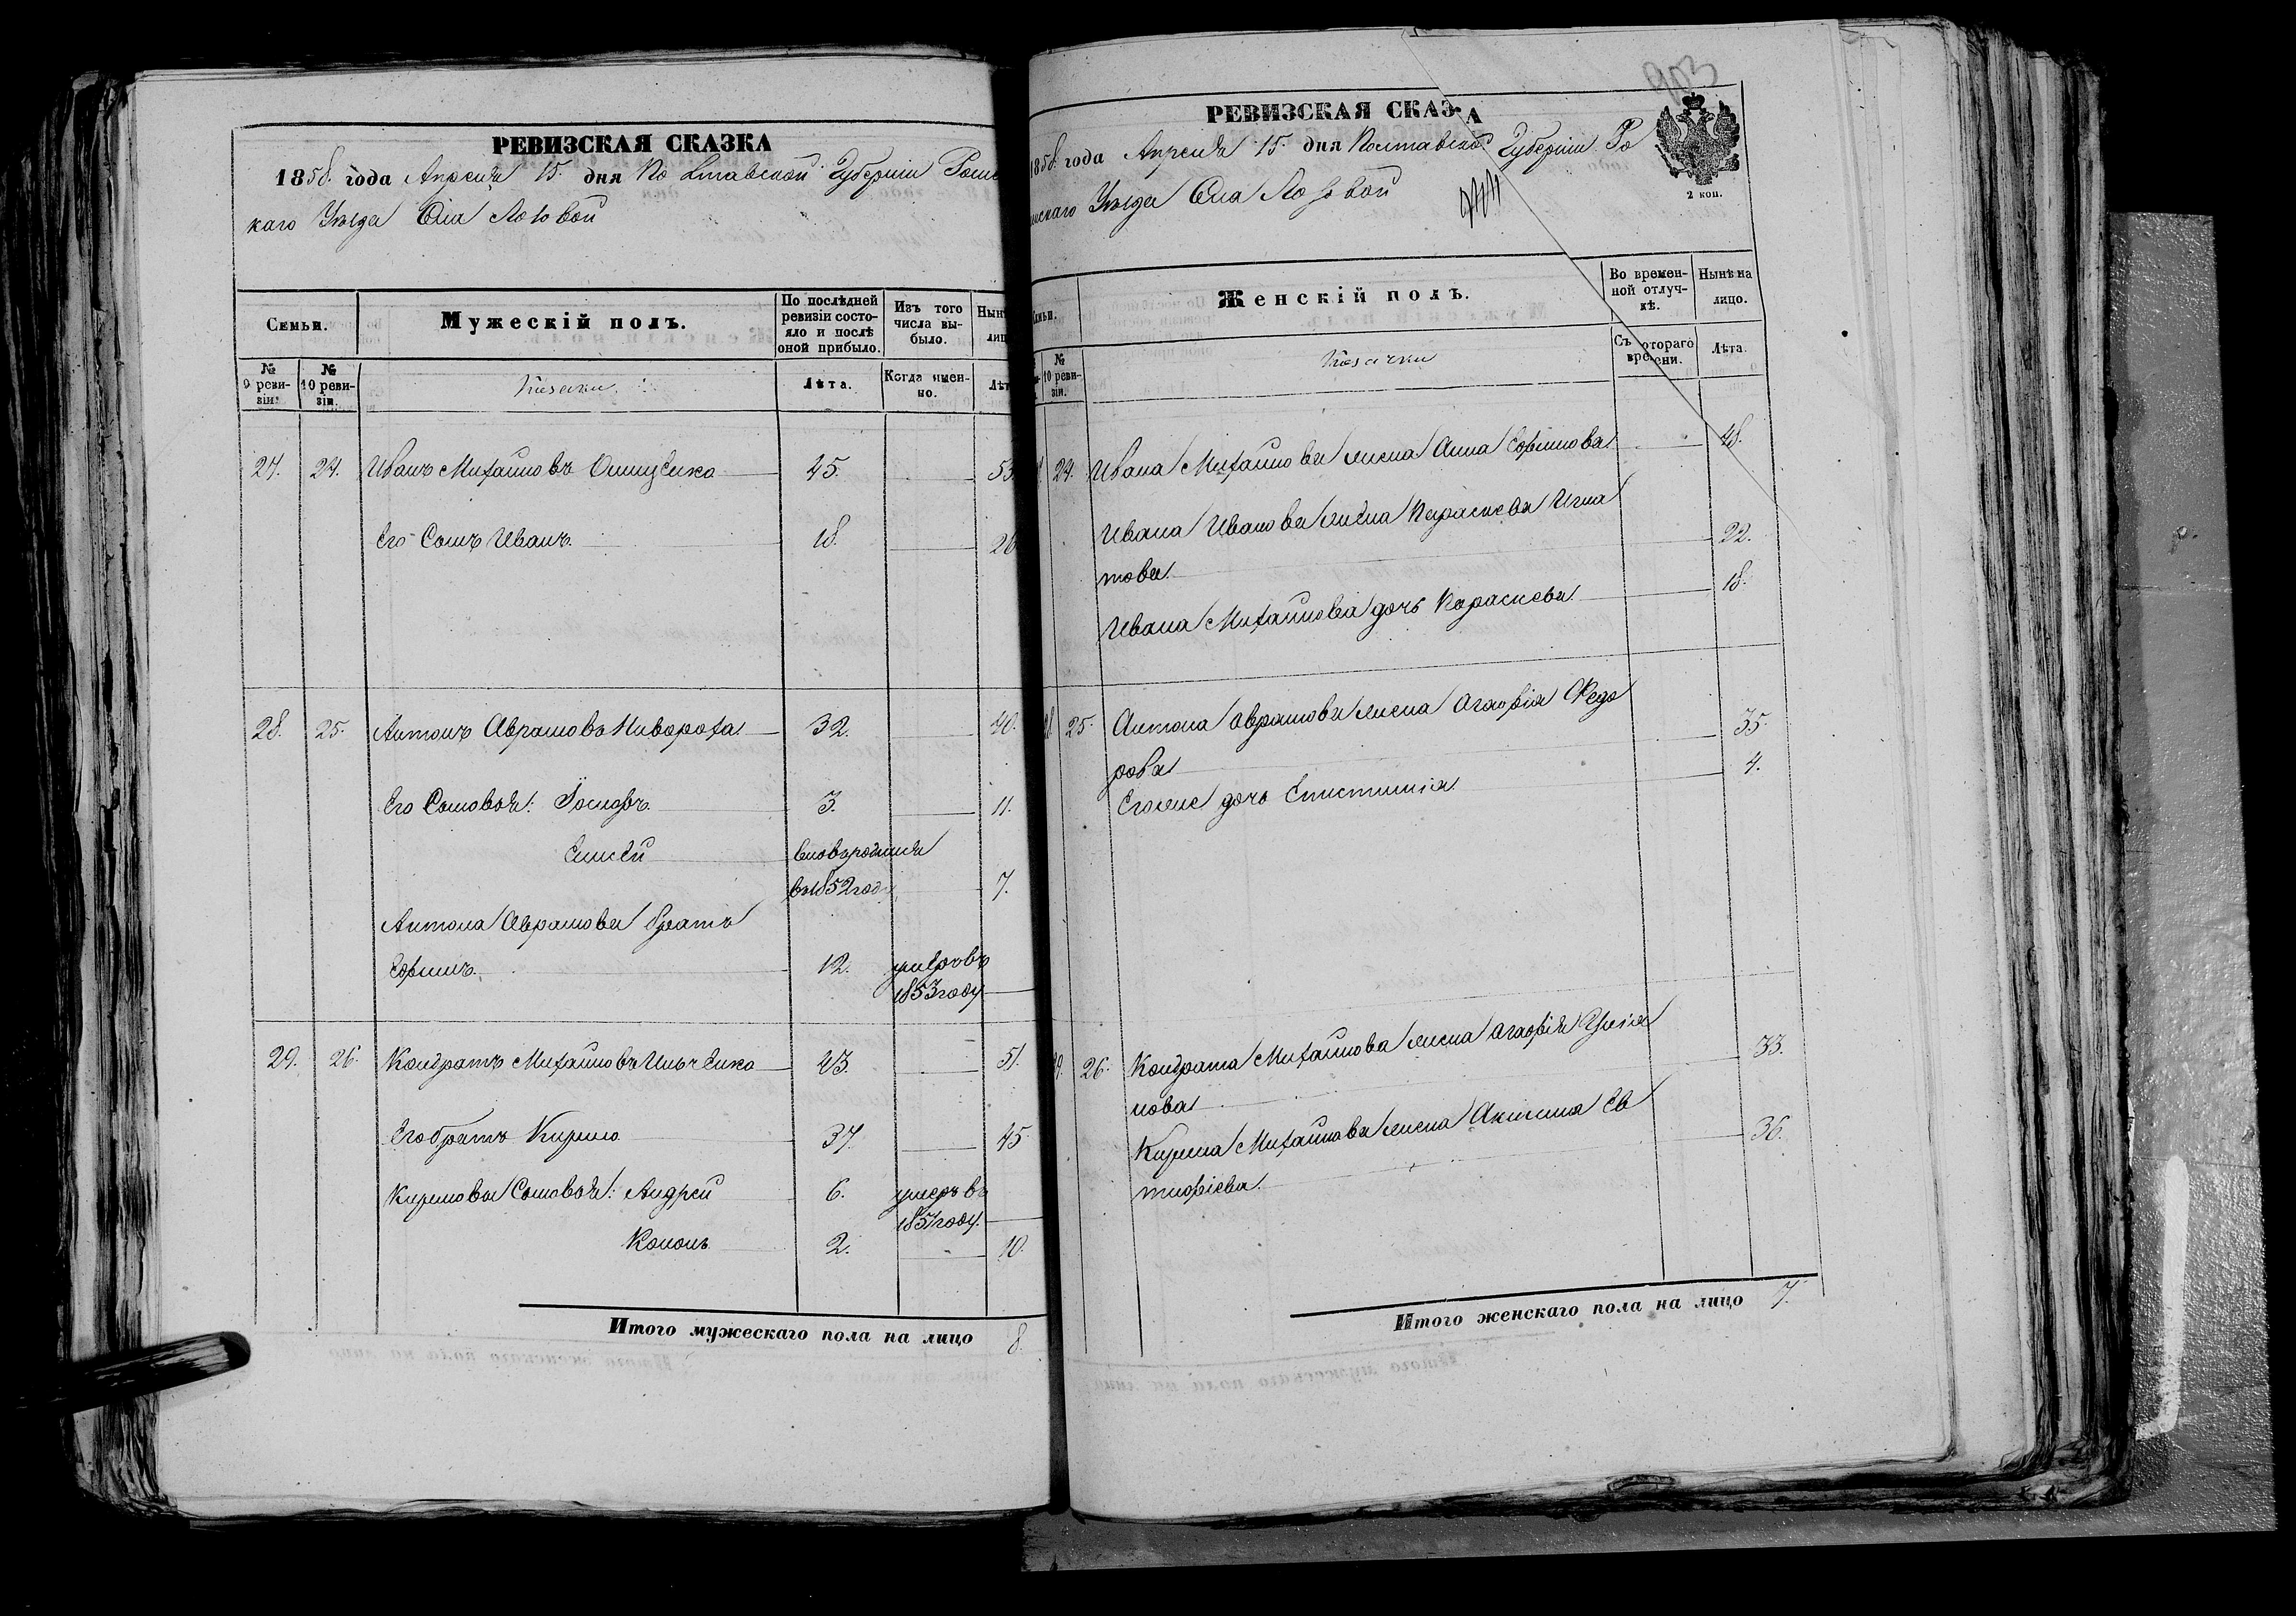 РЕВИЗСКАЯ СКАЗКА
1858. года Апреля 15. дня Полтавской Губерніи Роме
каго Уѣзда Села Лозовой
Семьи.
Мужескій полъ.
По послѣдней ревизіи состояло и послѣ оной прибыло.
Изъ того числа выбыло.
Нынѣ
лиц
№ 9 ревизіи.
№ 10 ревизіи.
Козаки.
Лѣта.
Когда именно.
Лѣт
27. 24. Иванъ Михайловъ 45. 53.
Его Сынъ Иванъ 18. 26
28. 25. Антонъ Аврамовъ Шиворотa 32. 40.
Его Сыновья: Іосифъ 3. 11.
Елисей вновьродился
въ 1852 году 7.
Антона Аврамова братъ
Ефимъ. 12. умеръ въ
1853 году
29. 26. Кондратъ Михайловъ Ильченко 43. 51.
Его братъ Кирило 37. 45
Кирилова Сыновья: Андрей 6. умеръ въ
1857 году.
Кононъ 2. 10.
Итого мужескаго пола на лицо 8.
903
РЕВИЗСКАЯ СКАЗКА
1858. года Апреля 15. дня Полтавской Губерніи Ро
менскаго Уѣзда Села Лозовой
2 коп.
Семьи.
Женскій полъ.
Во временной отлучкѣ.
Нынѣ на лицо.
№ 10 ревизіи.
Козачки
Съ котораго времени.
Лѣта.
24. Ивана Михайлова жена Анна Ефимова 48.
Ивана Иванова жена Параскева Игна
това 22.
Ивана Михайлова дочь Параскева 18.
28 25. Антона Аврамова жена Агафія Федо
рова 35.
Его же дочь Епистимія 4.
29. 26. Кондрата Михайлова жена Агафія Улія
нова 33.
Кирила Михайлова жена Акилина Ев
тифіева 36.
Итого женскаго пола на лицо 7.